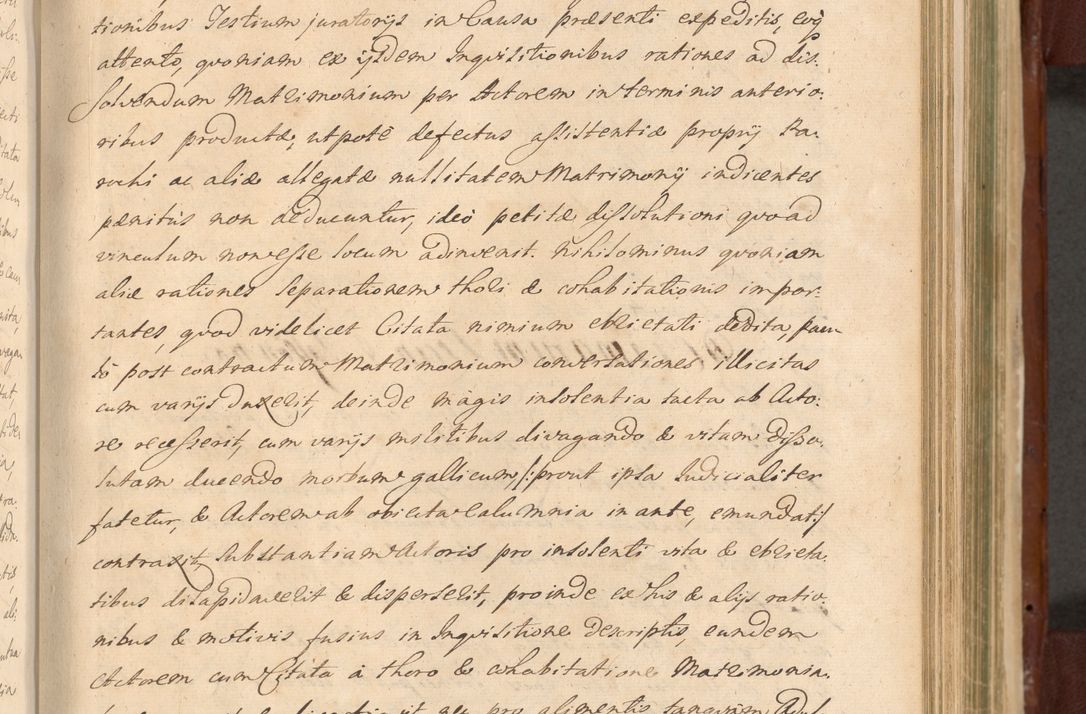 tionibus Testium juratorijs in Causa præsenti expeditis, eoq
attento, quoniam ex ijsdem Inquisitionibus rationes ad dis:
solvendum Matrimonium per Actorem in terminis anterio:
ribus productæ, utpote defectus assistentiæ proprij Pa:
rochi ac aliæ allegatæ nullitatem Matrimonij indicentes
pænitus non deducuntur, ideo petitæ dissolutioni quoad
vinculum non esse locum adinvenit. Nihilominus quoniam
aliæ rationes separationem thori & cohabitationis impor:
tantes, quod videlicet Citata nimium ebrietati dedita,
post contractum Matrimonium conversationes illicitas
cum varijs duxerit, deinde magis insolentia facta ab Acto:
re recesserit, cum varijs militibus divagando & vitam disso:
lutam ducendo morbum gallicum /: prout ipsa Judicialiter
fatetur, & Actorem ab obiecta calumnia in ante, emundat :/
contraxit, substantiam Actoris pro insolenti vita & ebrieta:
tibus dilapidaverit & disperserit, proinde ex his & alijs ratio:
nibus & motivis fusius in Inquisitione descriptis, eundem
Actorem cum Citata à thoro & cohabitatione Matrimonia:
ut pro alimentis tanquam